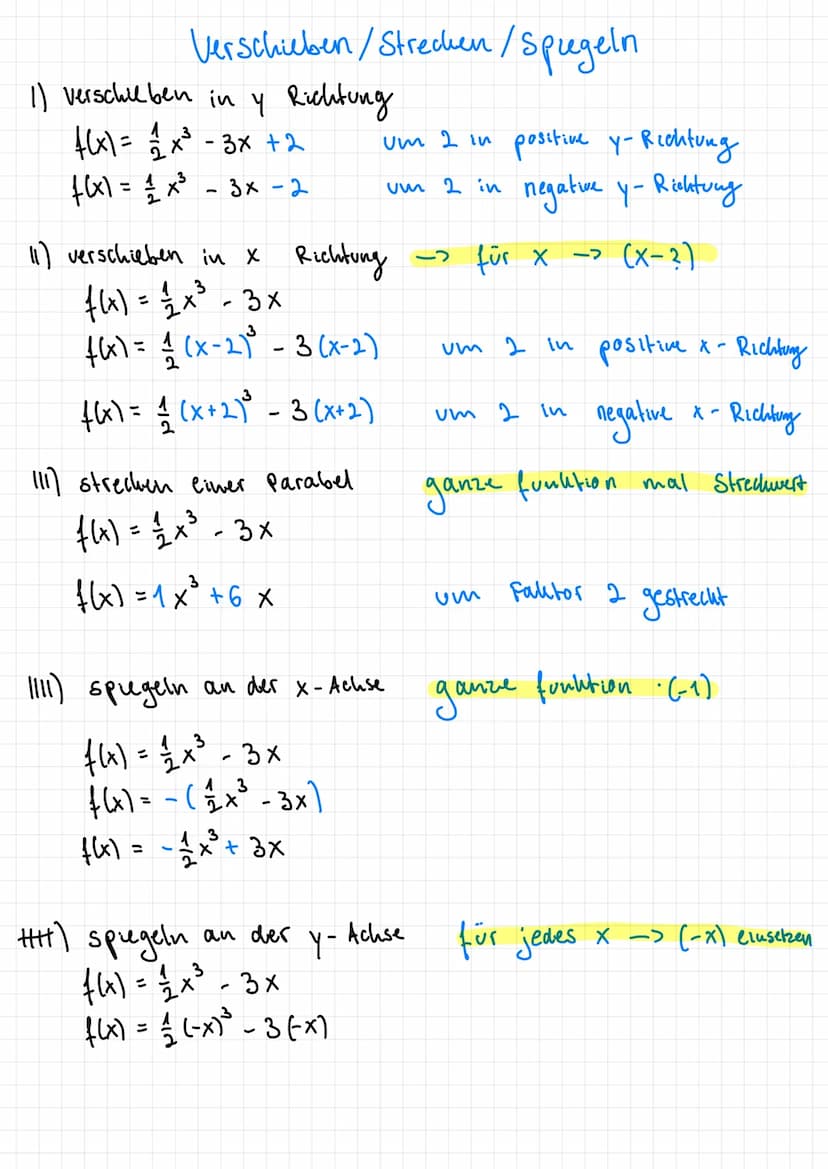 Verschieben/Strecken/Spiegeln
I) verschieben in y Richtung
f(x) = 1/2 x³ - 3x + 2 um 2 in positive y-Richtung
f(x) = 1/2 x³ - 3x - 2 um 2 in negative y-Richtung
II) verschieben in x Richtung -> für x -> (x-?)
f(x) = 1/2 x³ - 3x
f(x) = 1/2 (x-2)³ - 3(x-2) um 2 in positive x-Richtung
f(x) = 1/2 (x+2)³ - 3(x+2) um 2 in negative x-Richtung
III) strecken einer Parabel ganze funktion mal Streckwert
f(x) = 1/2 x³ - 3x
f(x) = 1x³ + 6x um Faktor 2 gestreckt
IIII) spiegeln an der x-Achse ganze funktion ·(-1)
f(x) = 1/2 x³ - 3x
f(x) = -(1/2 x³ - 3x)
f(x) = -1/2 x³ + 3x
IIIII) spiegeln an der y-Achse für jedes x -> (-x) einsetzen
f(x) = 1/2 x³ - 3x
f(x) = 1/2 (-x)³ - 3(-x)